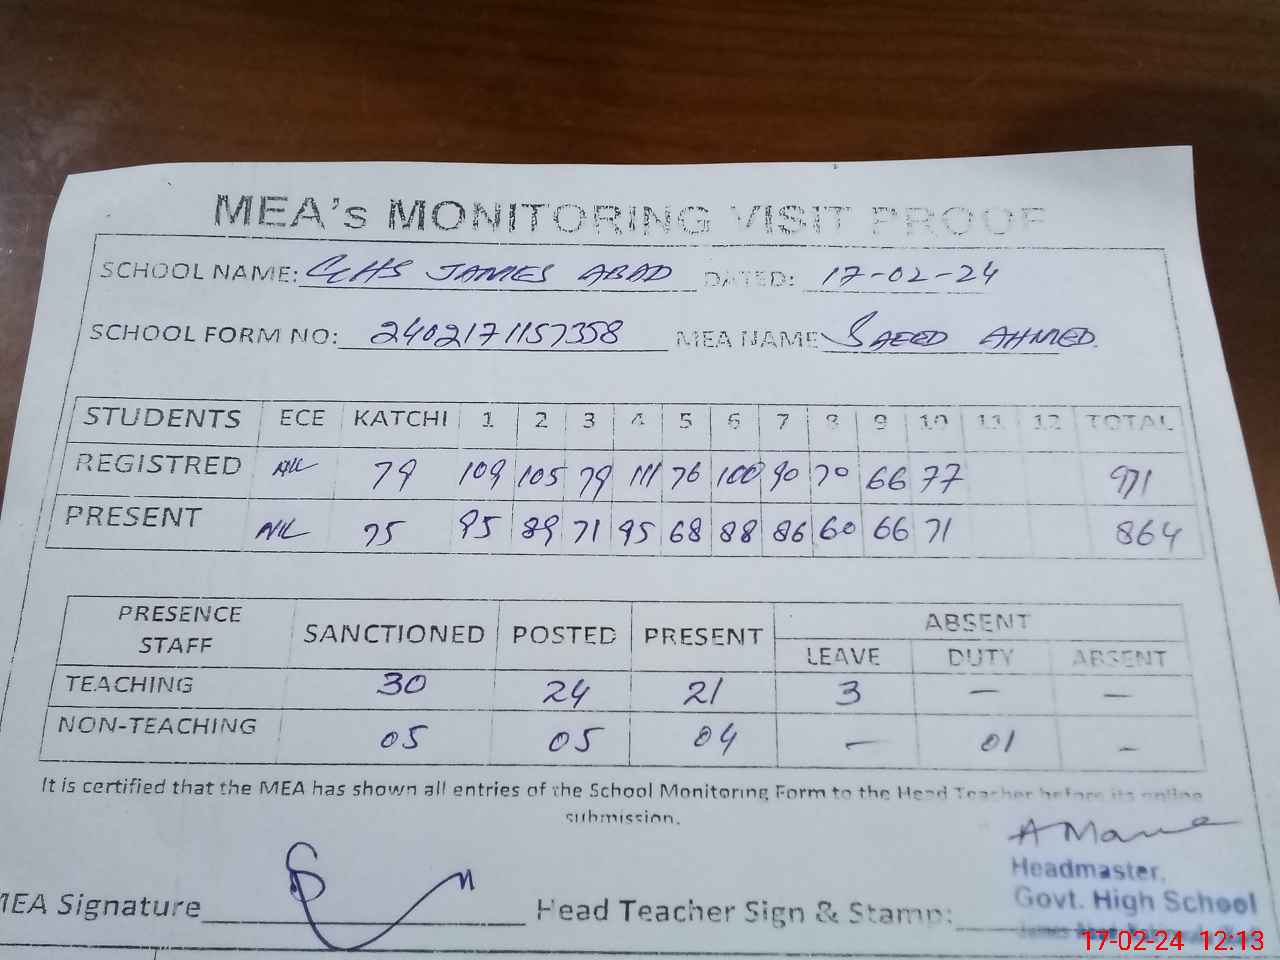 MEA's MONITORING VISIT PROOF
SCHOOL NAME: GHS JAMES ABAD DATED: 17-02-24
SCHOOL FORM NO: 2402171157358 MEA NAME SAEED AHMED.
STUDENTS ECE KATCHI 1 2 3 4 5 6 7 8 9 10 11 12 TOTAL
REGISTRED NIL 79 109 105 79 111 76 100 90 70 66 77 971
PRESENT NIL 75 95 89 71 95 68 88 86 60 66 71 864
PRESENCE STAFF SANCTIONED POSTED PRESENT ABSENT
LEAVE DUTY ABSENT
TEACHING 30 24 21 3 — —
NON-TEACHING 05 05 04 — 01 —
It is certified that the MEA has shown all entries of the School Monitoring Form to the Head Teacher before its online
submission.
MEA Signature Head Teacher Sign & Stamp:
Headmaster,
Govt. High School
17-02-24 12:13